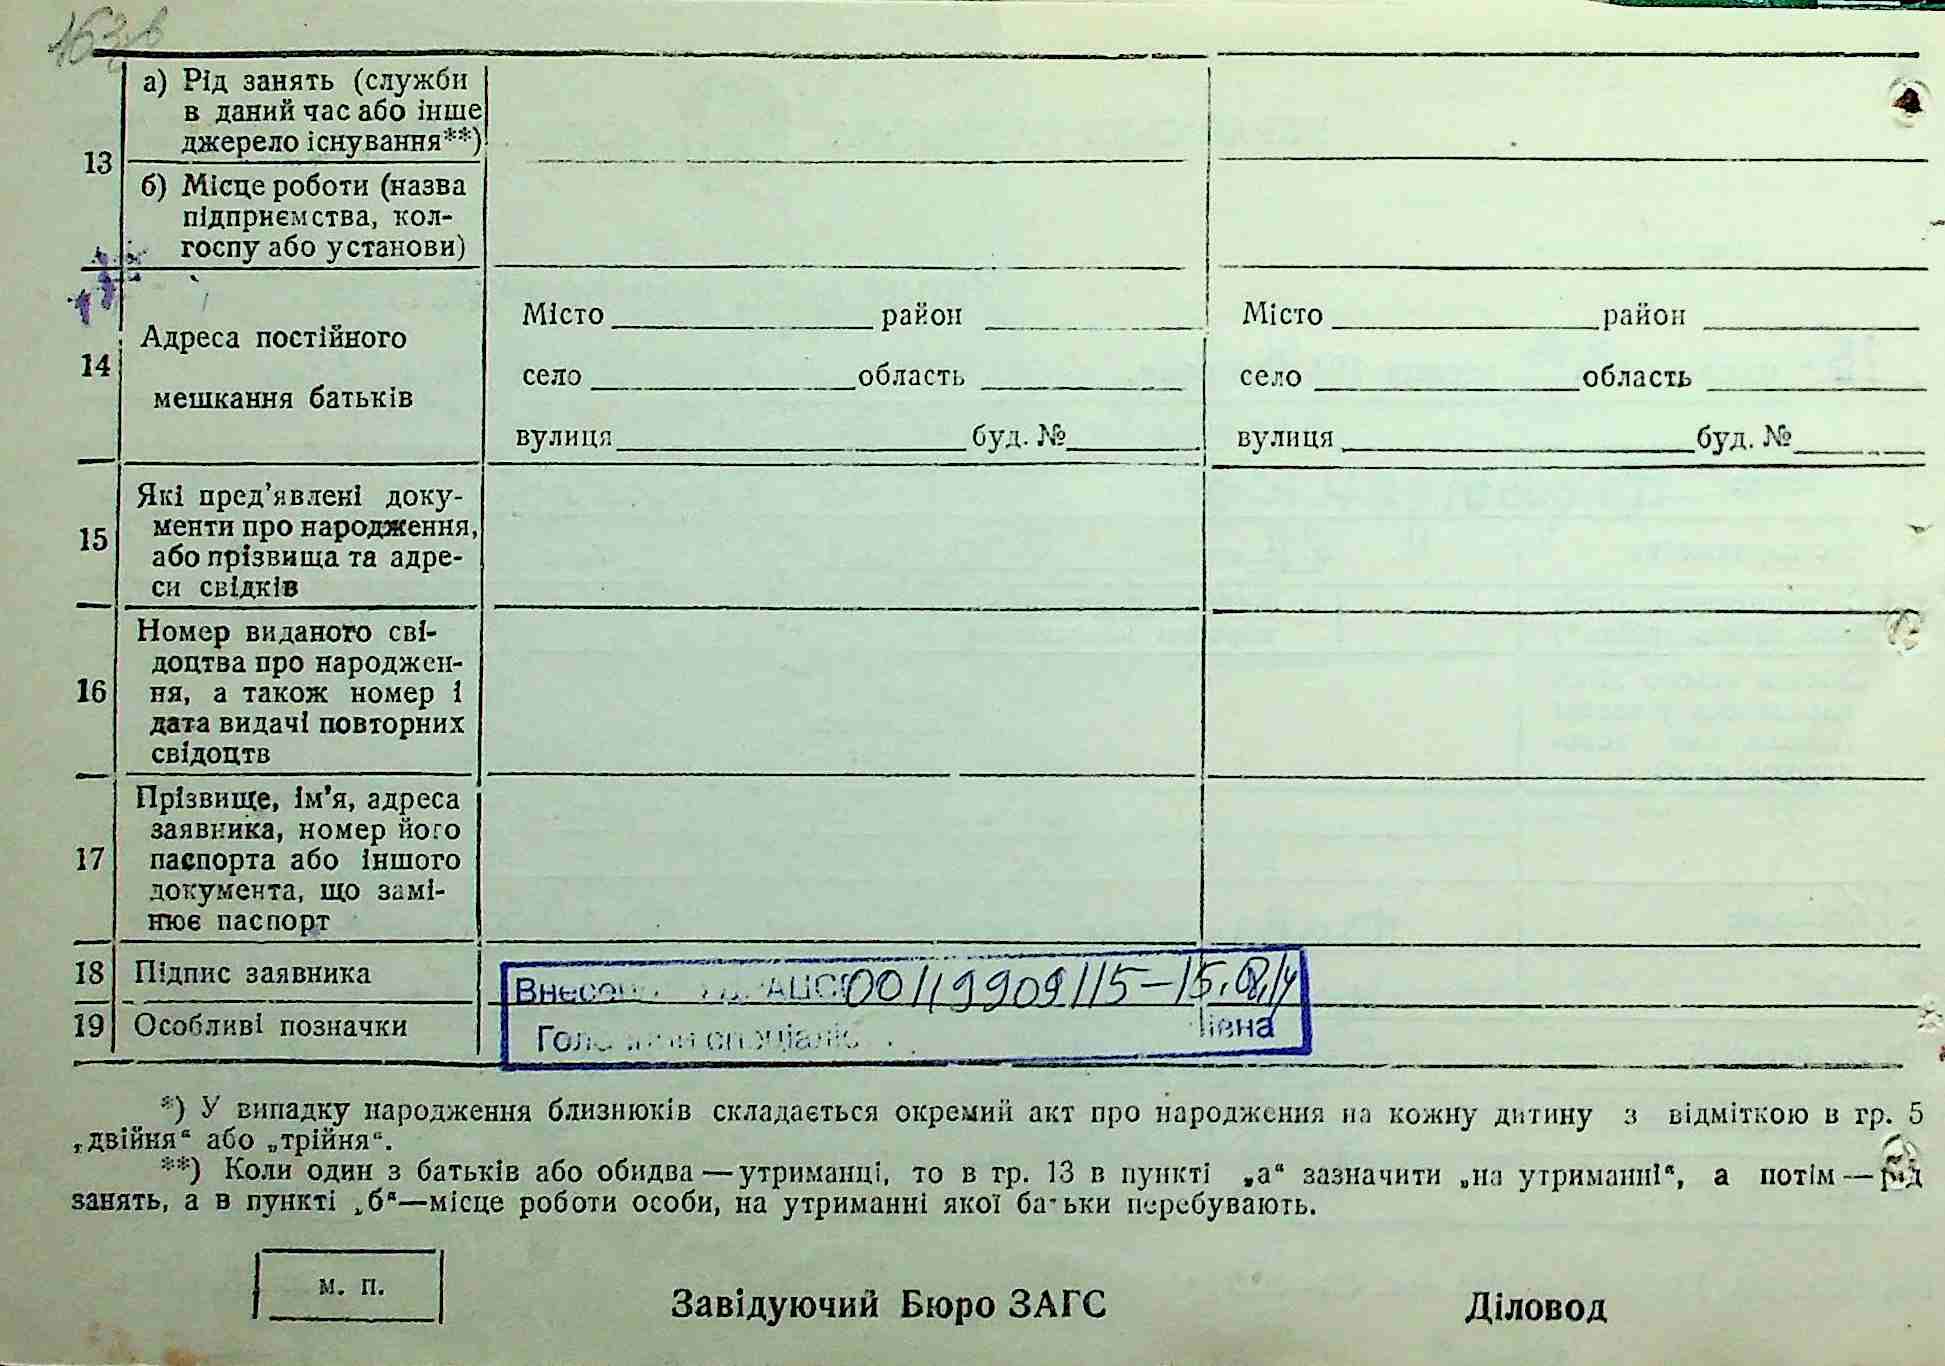 163в
13
а) Рід занять (служби
в даний час або інше
джерело існування**)
б) Місце роботи (назва
підприємства, кол-
госпу або установи)
14
Адреса постійного
мешкання батьків
Місто район
село область
вулиця буд. №
Місто район
село область
вулиця буд. №
15
Які пред’явлені доку-
менти про народження,
або прізвища та адре-
си свідків
16
Номер виданого сві-
доцтва про народжен-
ня, а також номер і
дата видачі повторних
свідоцтв
17
Прізвище, ім’я, адреса
заявника, номер його
паспорта або іншого
документа, що замі-
нює паспорт
18 Підпис заявника
00119909115-15.08.14
19 Особливі позначки
*) У випадку народження близнюків складається окремий акт про народження на кожну дитину з відміткою в гр. 5
„двійня“ або „трійня“.
**) Коли один з батьків або обидва — утриманці, то в гр. 13 в пункті „а“ зазначити „на утриманні“, а потім — рід
занять, а в пункті „б“—місце роботи особи, на утриманні якої батьки перебувають.
м. п.
Завідуючий Бюро ЗАГС Діловод